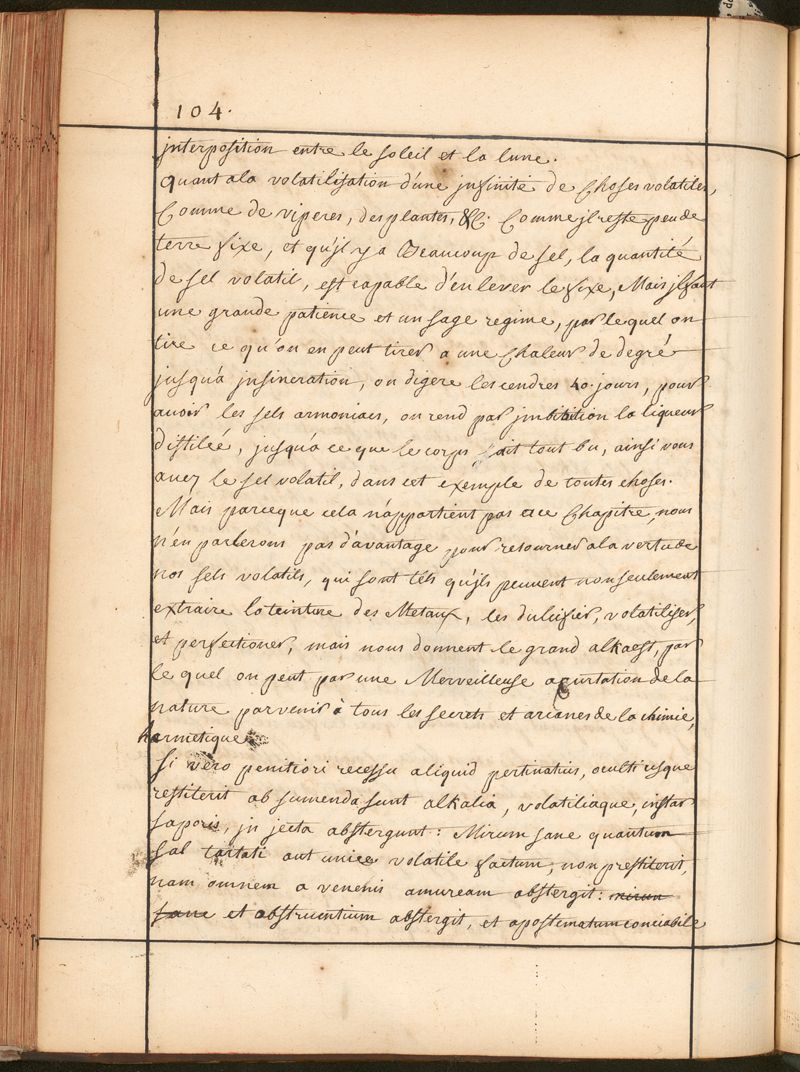 104.
jnterposition entre le soleil et la lune.
quant ala volatilisation d'une jnfinité de choses volatiles,
Comme de viperes, des plantes, &c. Comme jl reste peu de
terre fixe, et qu'jl y a Beaucoup de sel, la quantité
de sel volatil, est capable d'enlever le fixe, Mais jl faut
une grande patience et un sage regime, par le quel on
tire ce qu'on en peut tirer a une Chaleur de degré
jusqu'a jnsineration, on digere les cendres 40. jours, pour
avoir les sels armoniacs, on rend par jmbibition la liqueur
distileé, jusqu'a ce que le corps ait tout bu, ainsi vous
avez le sel volatil, dans cet exemple de toutes choses.
Mais parceque cela n'appartient pas a ce Chapitre, nous
n'en parlerons pas d'avantage pour retourner a la vertu de
nos sels volatils, qui sont tels qu'jls peuvent non seulement
extraire la teinture des Metaux, les dulcifier, volatiliser,
et perfectioner, mais nous donnent le grand alkaest, par
le quel on peut par une Merveilleuse acurtation de la
nature parvenir à tous les secrets et arcanes de la chimie,
hermetique
Si vero penitiori recessu aliquid pertinatius, oculti usque
restiterit ab sumenda sunt alkalia, volatiliaque, instar
saporis, jn jecta abstergunt: Mirum sane quantum
sal tartati aut unice volatile factum, non prestiterit,
nam omnem a venenis amuream abstergit: mirum
sane et abstruentium abstergit, et apostematum conciabile